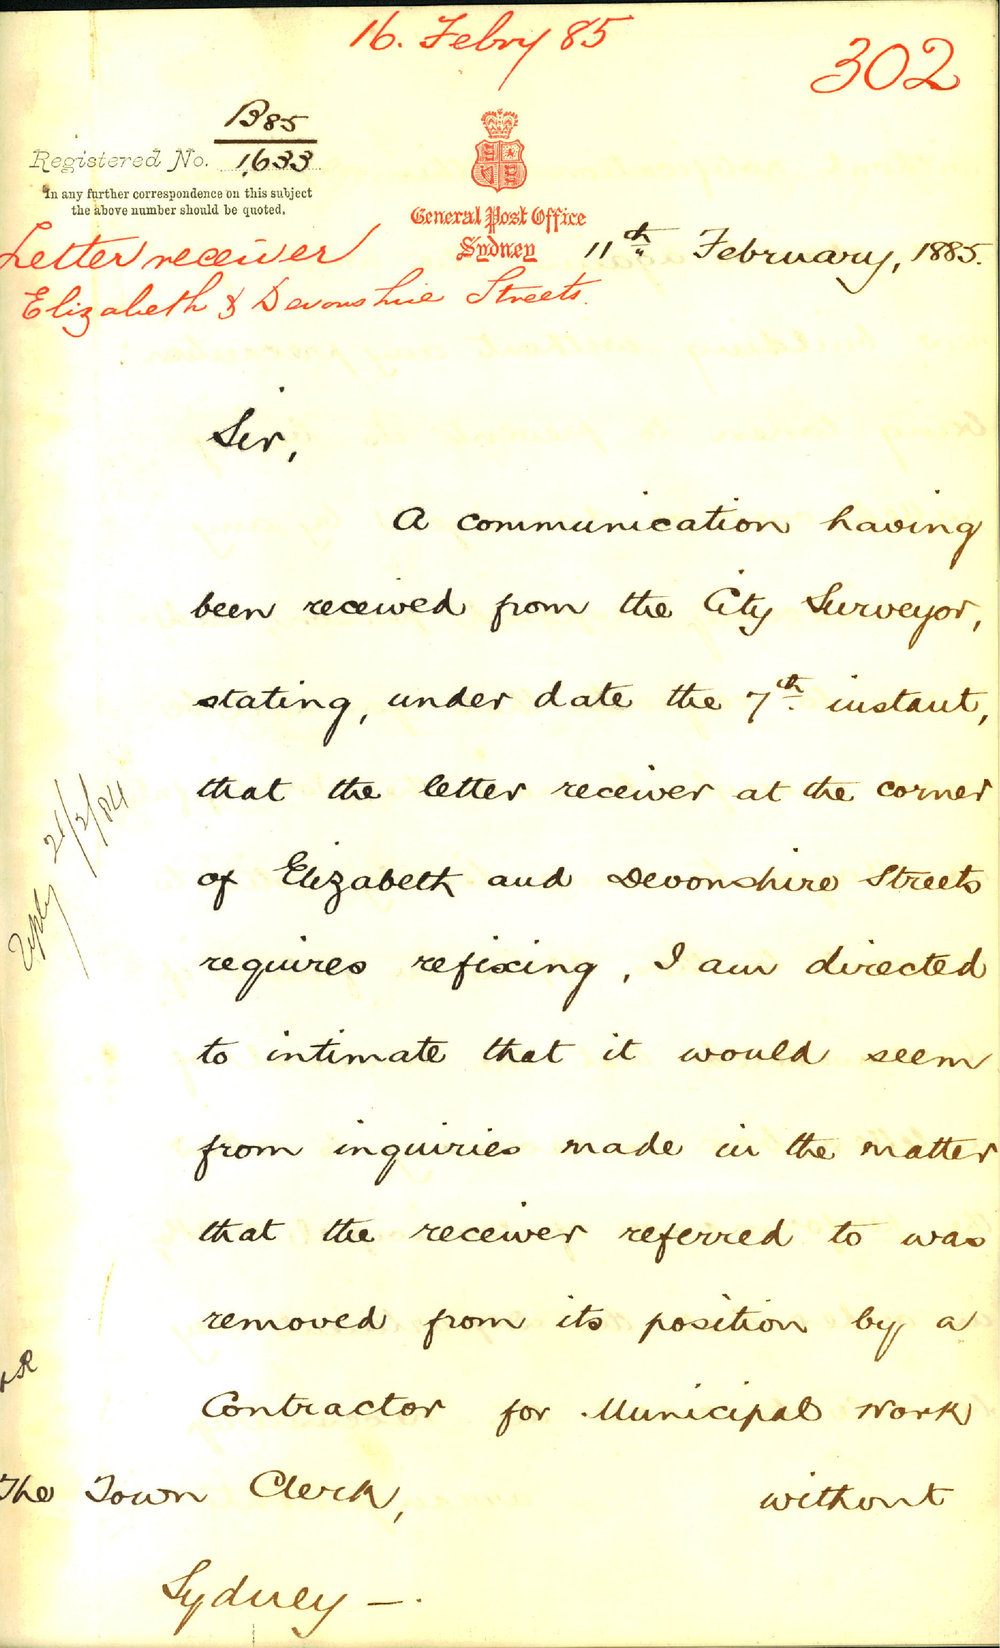 16. Febry 85
302
B85
Registered No. 1,633
In any further correspondence on this subject
the above number should be quoted.
General Post Office
Sydney
11th February, 1885.
Letter receiver
Elizabeth & Devonshire Streets.
Sir,
A communication having
been received from the City Surveyor,
stating, under date the 7th. instant,
that the letter receiver at the corner
of Elizabeth and Devonshire Streets
requires refixing, I am directed
to intimate that it would seem
from inquiries made in the matter
that the receiver referred to was
removed from its position by a
Contractor for Municipal Work
without
The Town Clerk,
Sydney —.
Reply 21/2/84